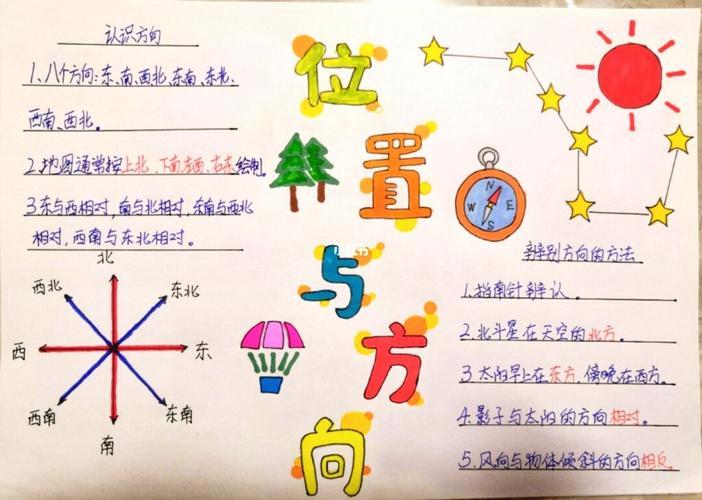 认识方向
1、八个方向:东、南、西、北、东南、东北、
西南、西北。
2.地图通常按上北、下南、左西、右东绘制。
3.东与西相对,南与北相对,东南与西北
相对,西南与东北相对。
北
西北
东北
西
东
西南
东南
南
位
置
与
方
向
N
W
E
S
辨别方向的方法
1.指南针辨认。
2.北斗星在天空的北方。
3.太阳早上在东方,傍晚在西方。
4.影子与太阳的方向相对。
5.风向与物体倾斜的方向相反。